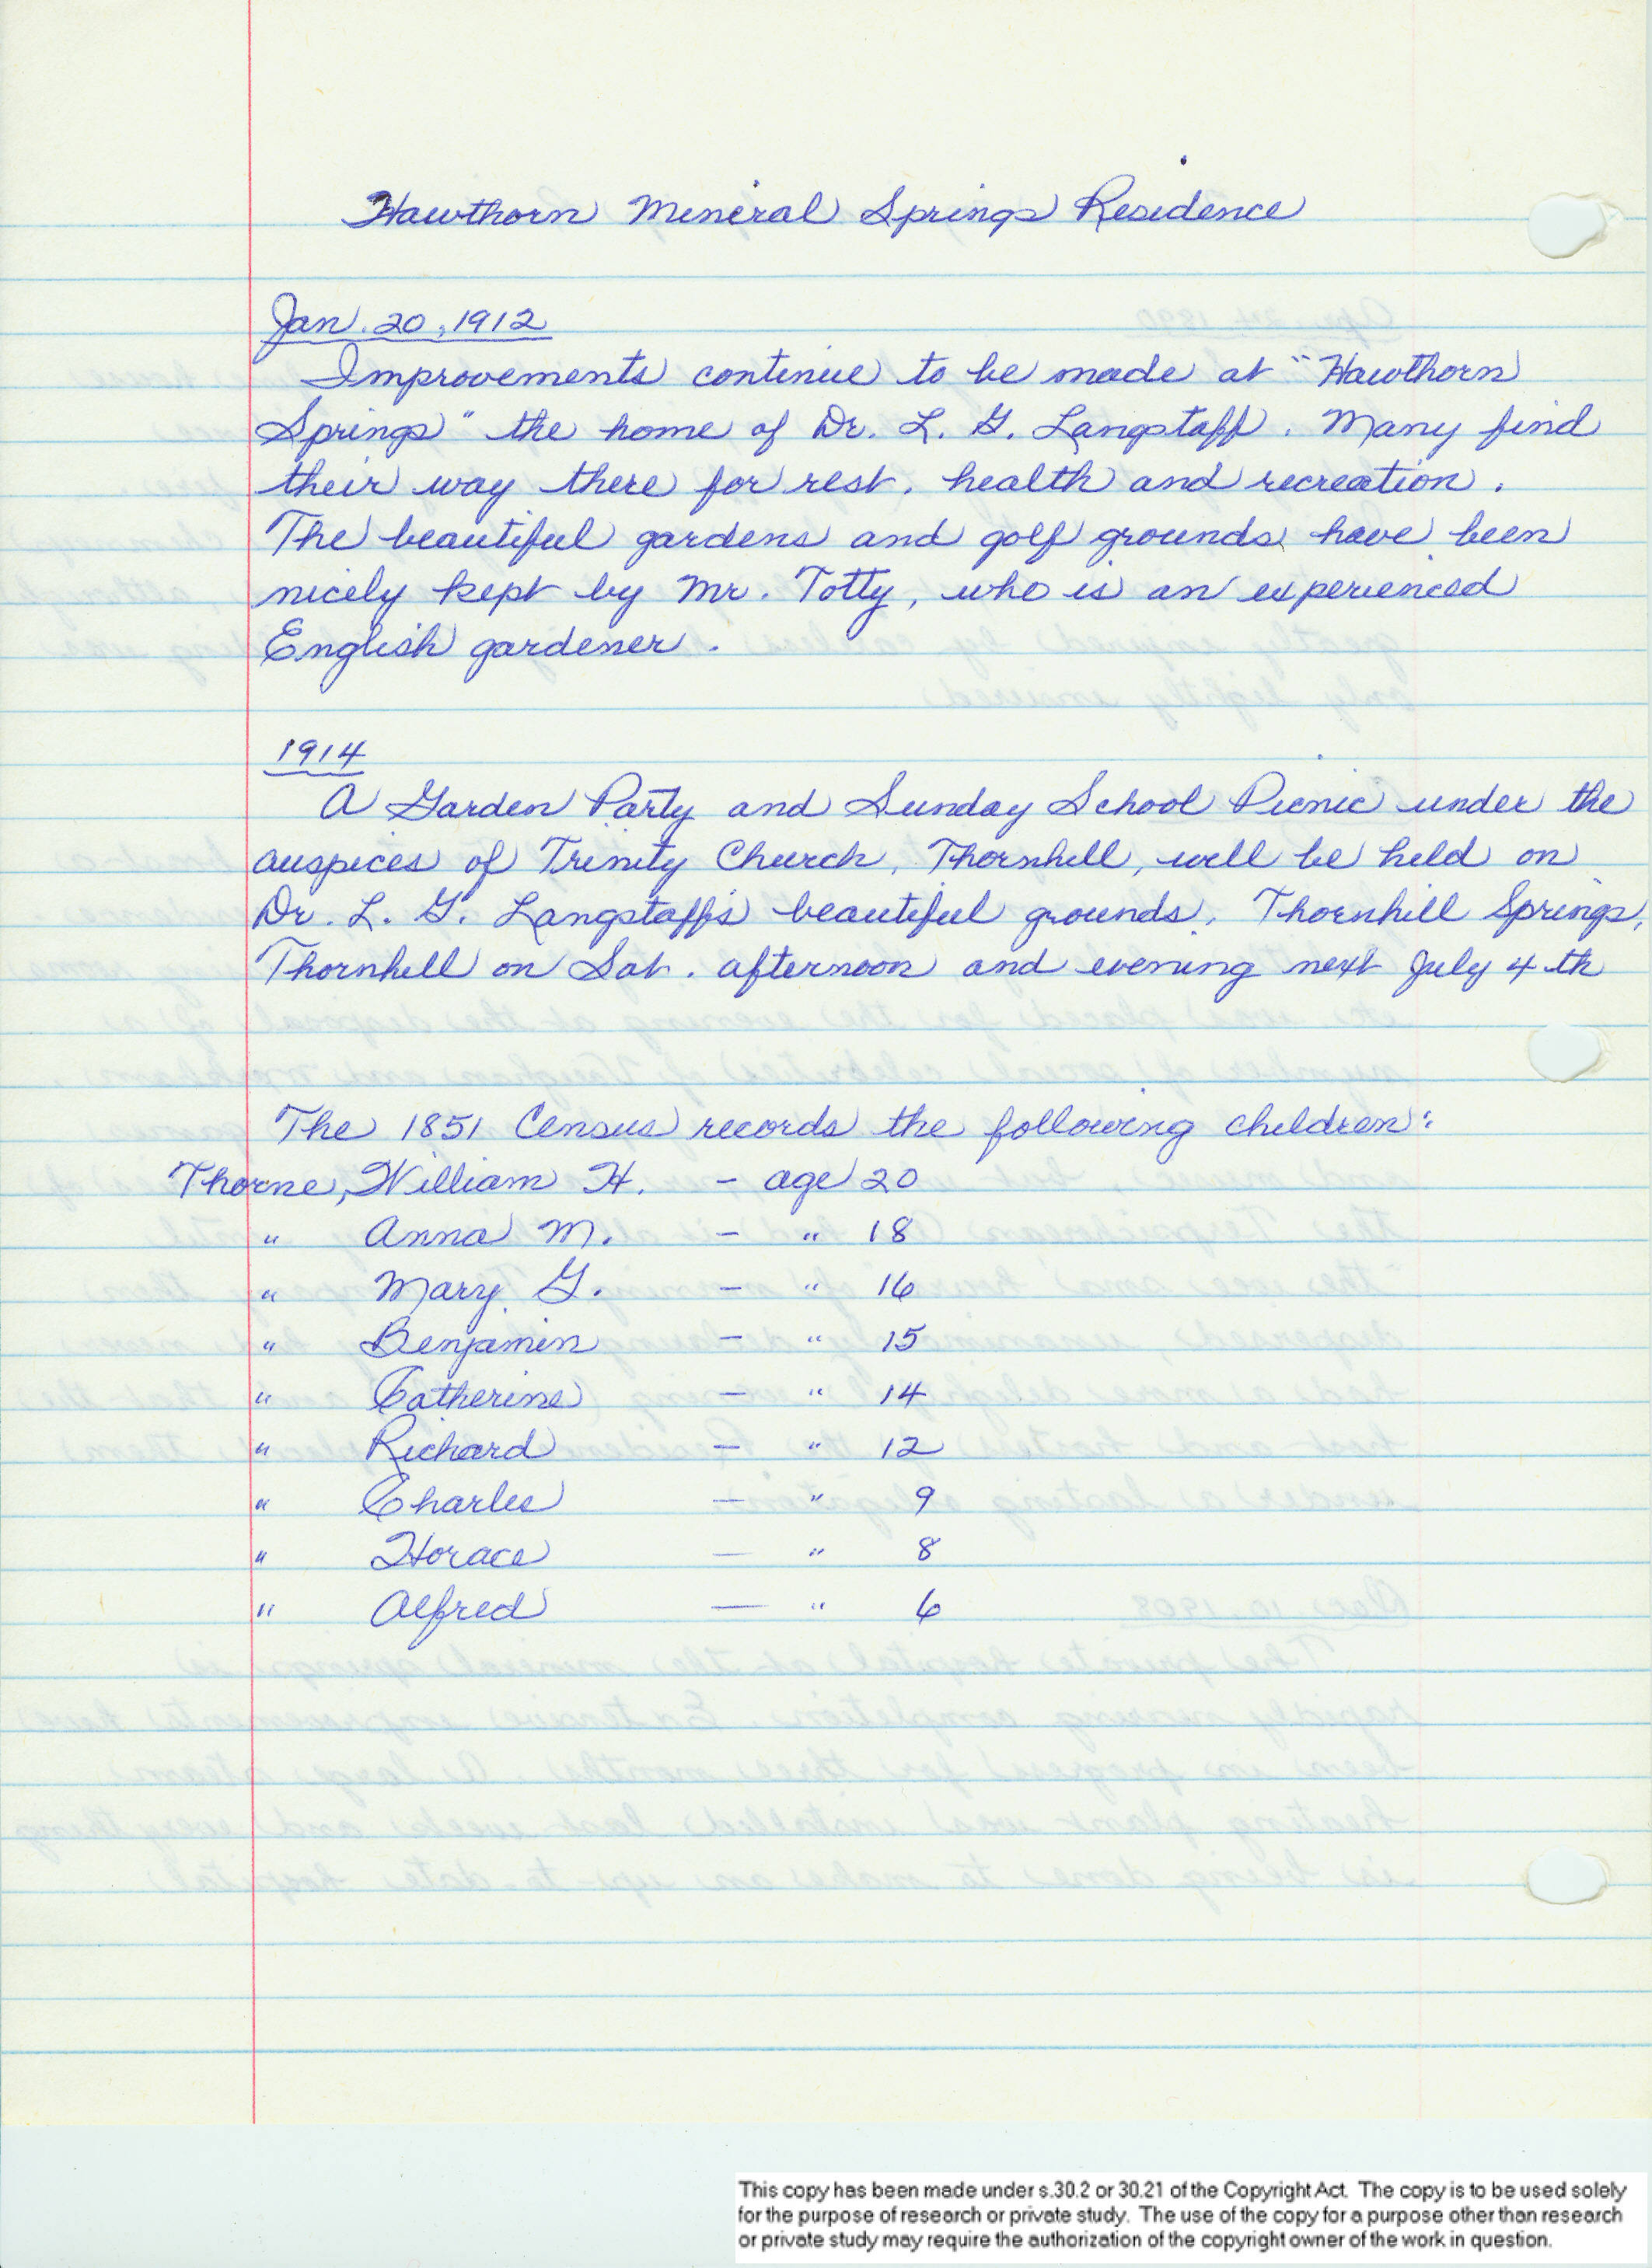 Hawthorn Mineral Springs Residence
Jan. 20, 1912
Improvements continue to be made at "Hawthorn
Springs" the home of Dr. L. G. Langstaff. Many find
their way there for rest, health and recreation.
The beautiful gardens and golf grounds have been
nicely kept by Mr. Totty, who is an experienced
English gardener.
1914
A Garden Party and Sunday School Picnic under the
auspices of Trinity Church, Thornhill, will be held on
Dr. L. G. Langstaff's beautiful grounds, Thornhill Springs,
Thornhill on Sat. afternoon and evening next July 4th
The 1851 Census records the following children:
Thorne, William H. - age 20
" Anna M. - " 18
" Mary G. - " 16
" Benjamin - " 15
" Catherine - " 14
" Richard - " 12
" Charles - " 9
" Horace - " 8
" Alfred - " 6
This copy has been made under s.30.2 or 30.21 of the Copyright Act. The copy is to be used solely
for the purpose of research or private study. The use of the copy for a purpose other than research
or private study may require the authorization of the copyright owner of the work in question.